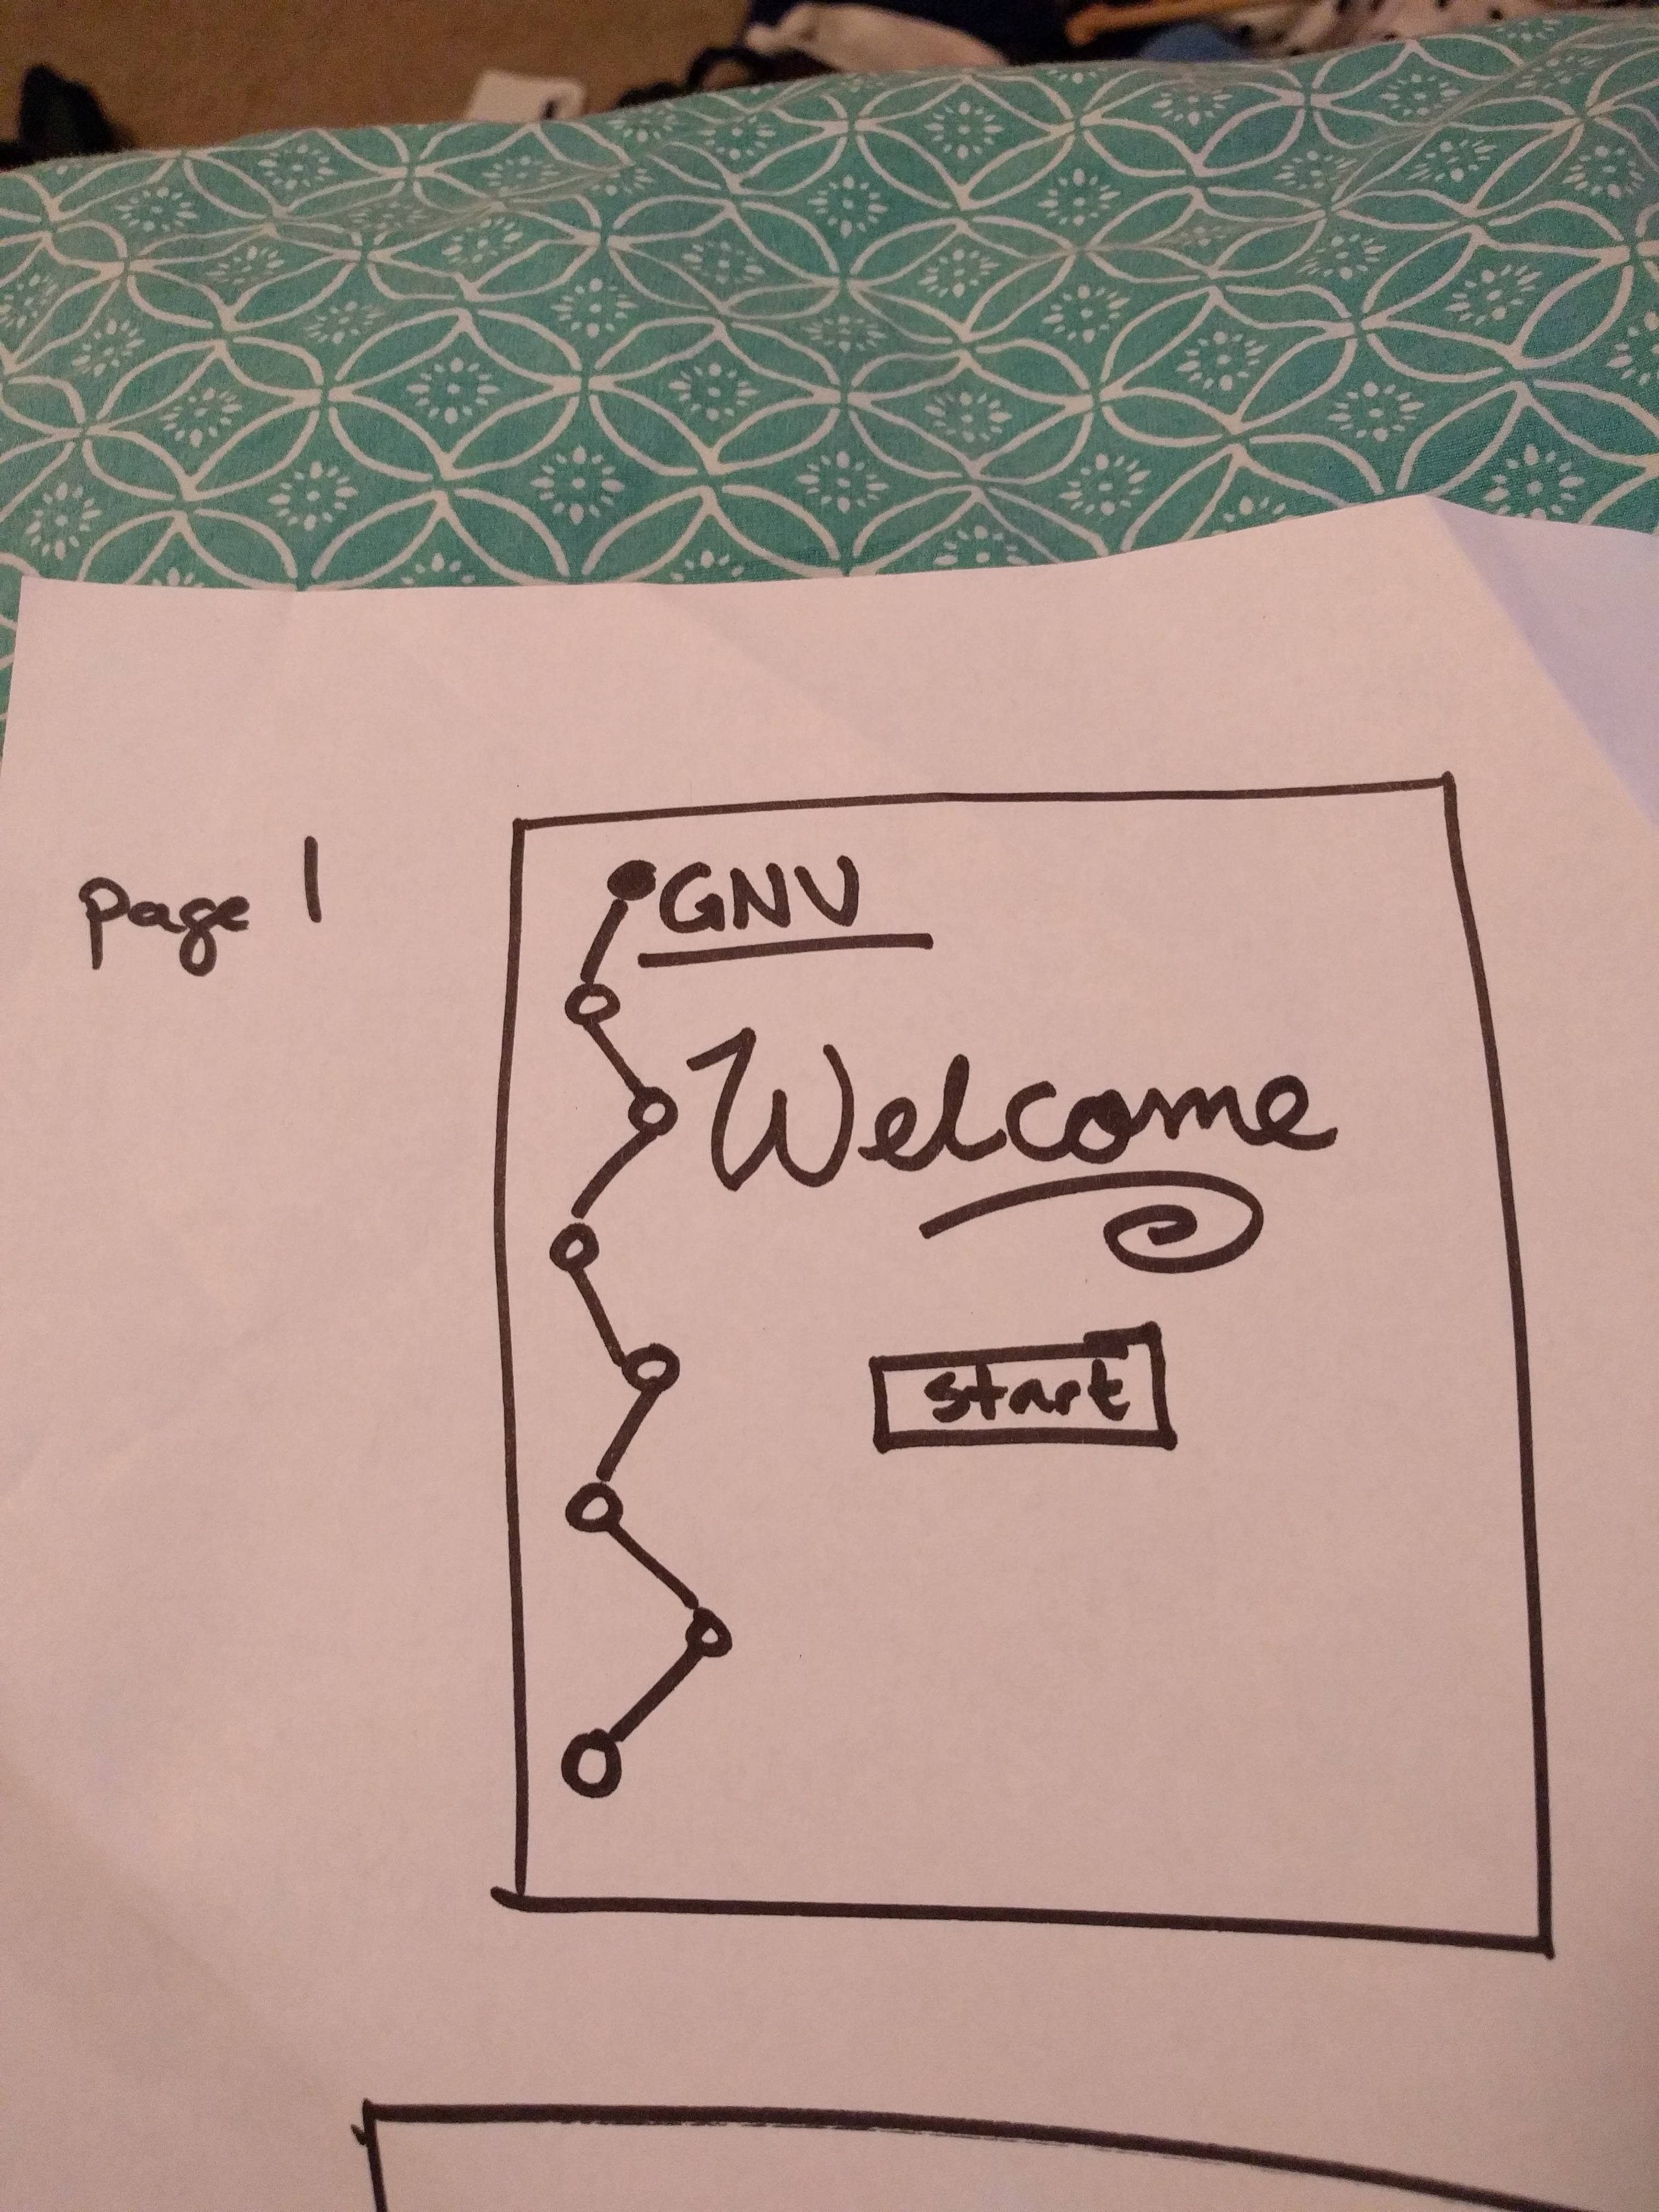 page 1
GNV
Welcome
start